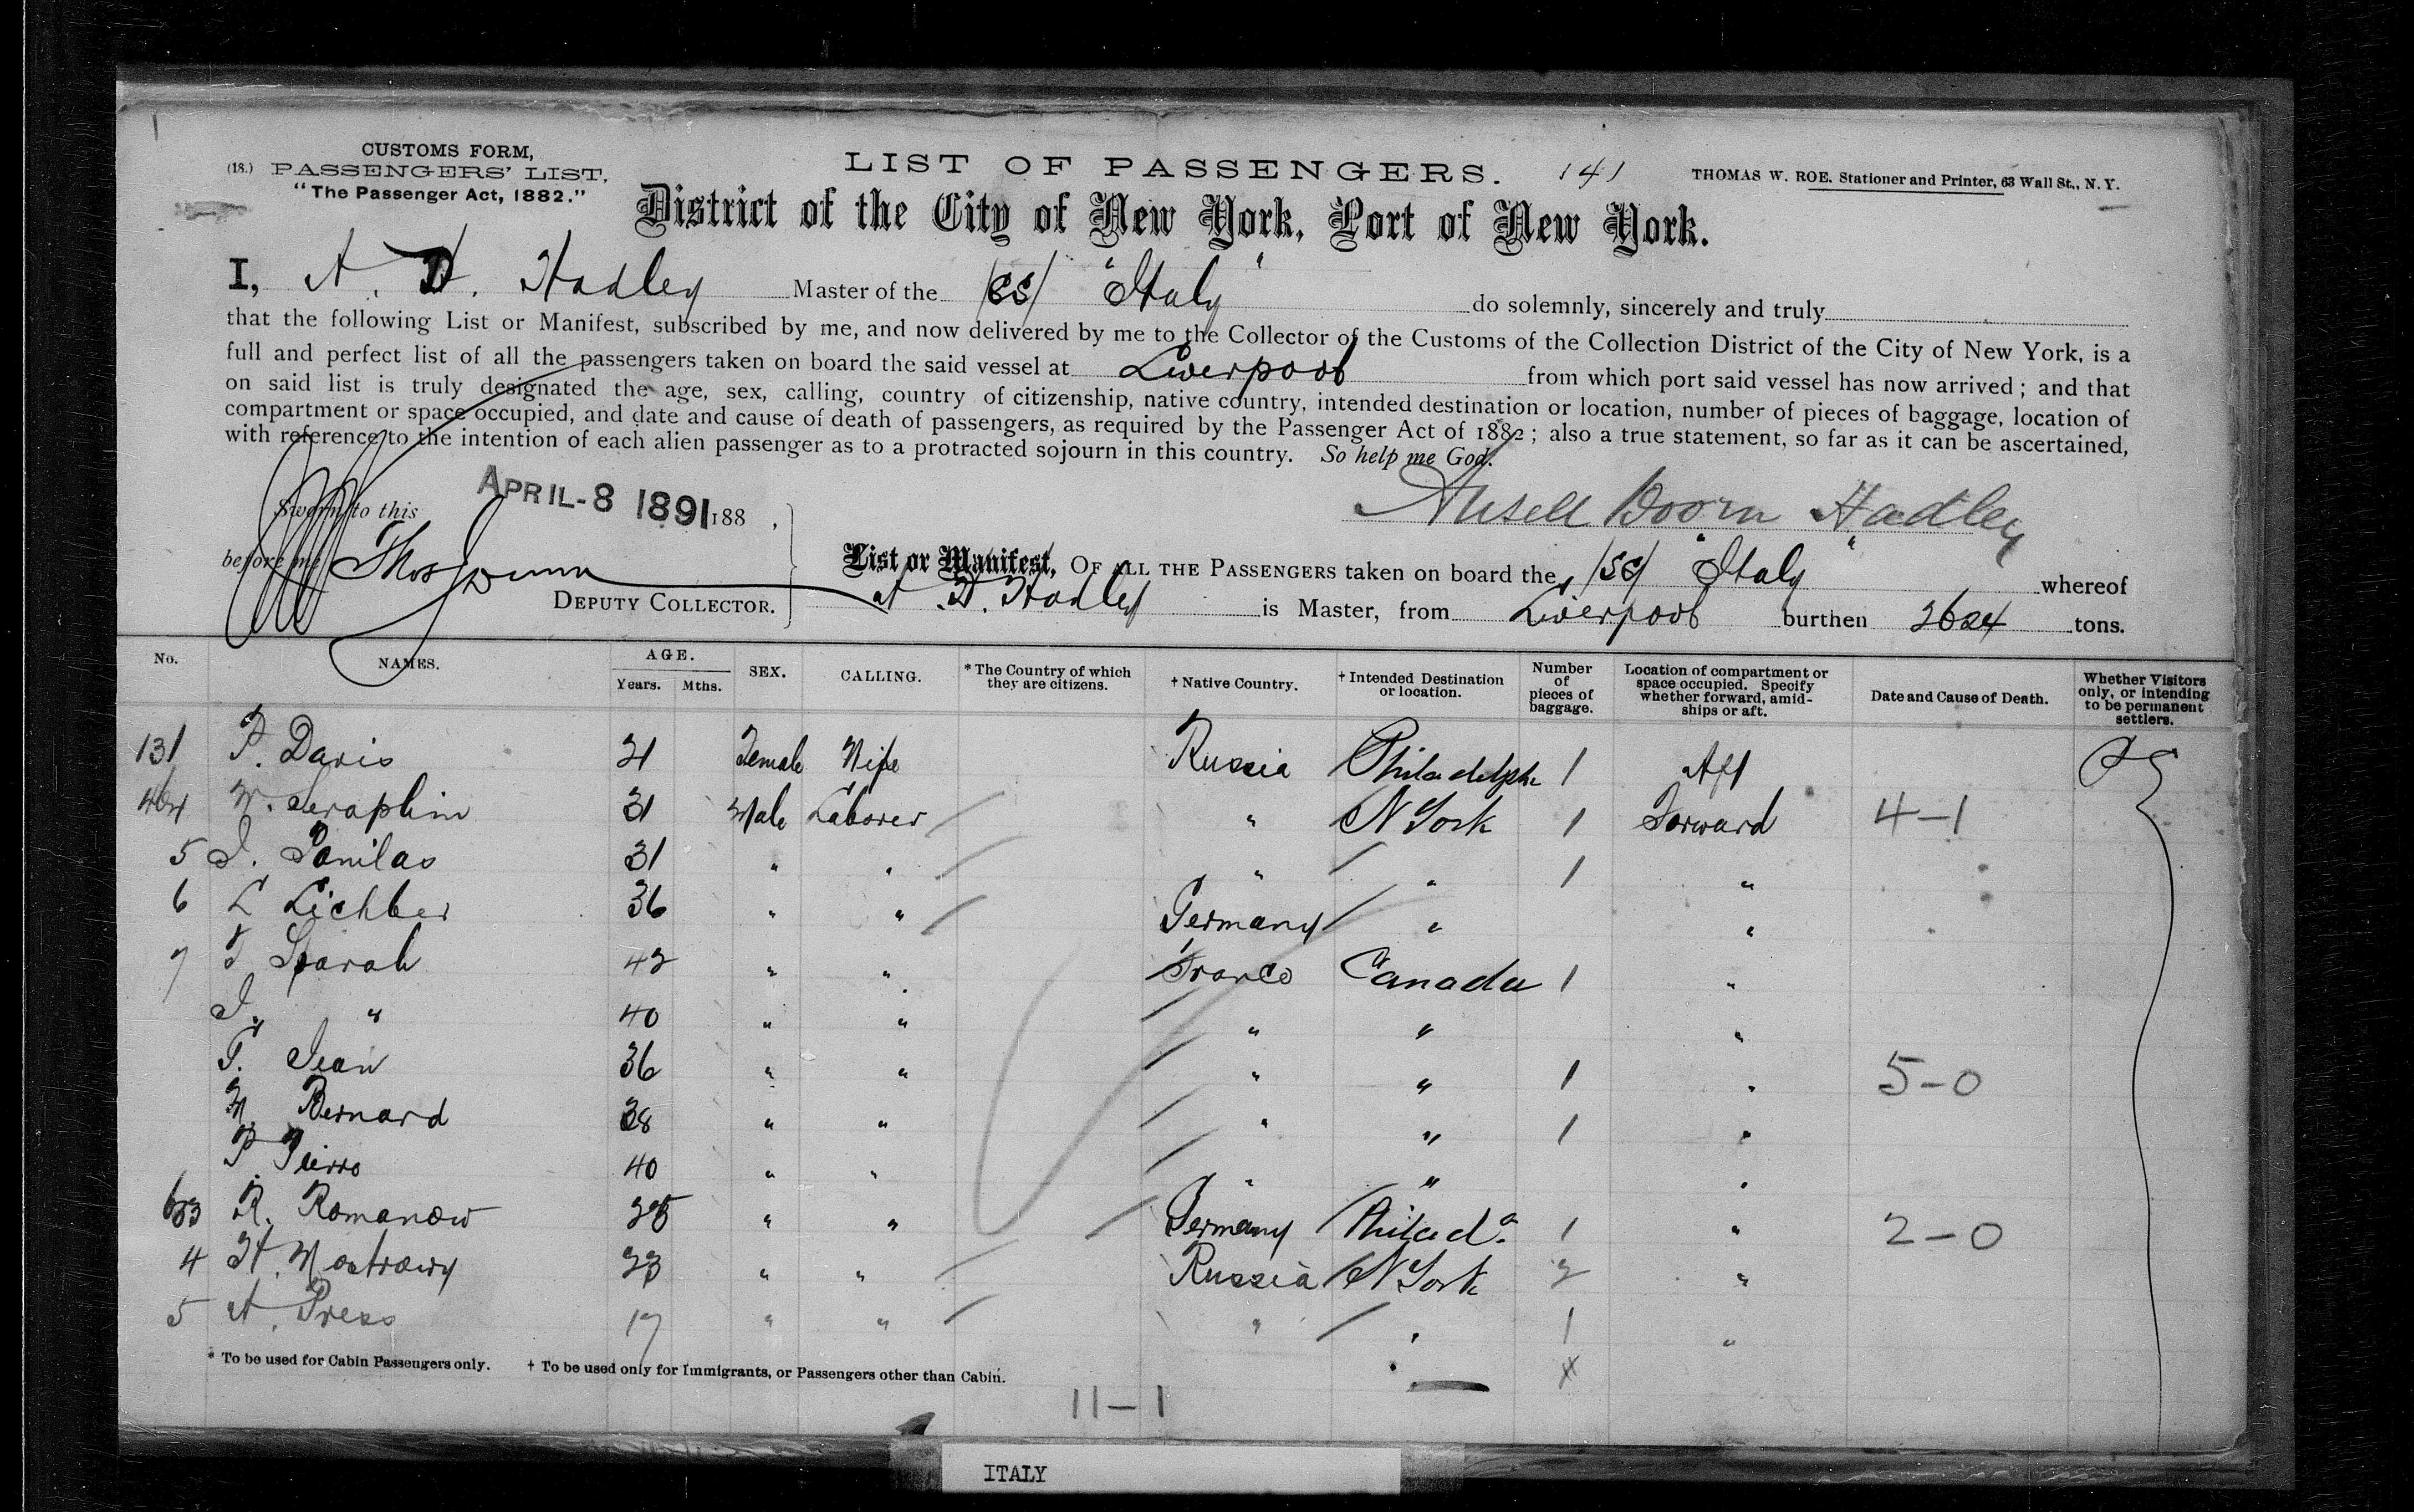 CUSTOMS FORM,
(18.) PASSENGERS' LIST.
"The Passenger Act, 1882."
LIST OF PASSENGERS. 141
THOMAS W. ROE. Stationer and Printer, 63 Wall St., N. Y.
District of the City of New York, Port of New York.
I, A. D. Hadley Master of the /SS/ "Italy" do solemnly, sincerely and truly
that the following List or Manifest, subscribed by me, and now delivered by me to the Collector of the Customs of the Collection District of the City of New York, is a
full and perfect list of all the passengers taken on board the said vessel at Liverpool from which port said vessel has now arrived; and that
on said list is truly designated the age, sex, calling, country of citizenship, native country, intended destination or location, number of pieces of baggage, location of
compartment or space occupied, and date and cause of death of passengers, as required by the Passenger Act of 1882; also a true statement, so far as it can be ascertained,
with reference to the intention of each alien passenger as to a protracted sojourn in this country. So help me God.
Sworn to this APRIL-8 1891 188 ,
Hadley
before me Thos
DEPUTY COLLECTOR.
List or Manifest, OF ALL THE PASSENGERS taken on board the /SS/ "Italy" whereof
A. H. Hadley is Master, from Liverpool burthen 2624 tons.
No. NAMES. AGE. Years. Mths. SEX. CALLING. * The Country of which they are citizens. † Native Country. † Intended Destination or location. Number of pieces of baggage. Location of compartment or space occupied. Specify whether forward, amid-ships or aft. Date and Cause of Death. Whether Visitors only, or intending to be permanent settlers.
131 P. Davis 21 Female Wife Russia Philadelph 1 Aft
W. Seraphin 31 Male Laborer " N York 1 Forward 4-1
5 31 " " " " 1 "
6 L 36 " " Germany " "
7 42 " " France Canada 1 "
J. " 40 " " " " "
T. Jean 36 " " " " 1 " 5-0
Bernard " " " " 1 "
P. 40 " " " " "
R. Romanow " " Germany Philada. 1 " 2-0
4 23 " " Russia N York 2 "
5 A. Press 17 " " " " 1 "
* To be used for Cabin Passengers only. † To be used only for Immigrants, or Passengers other than Cabin.
11-1
ITALY